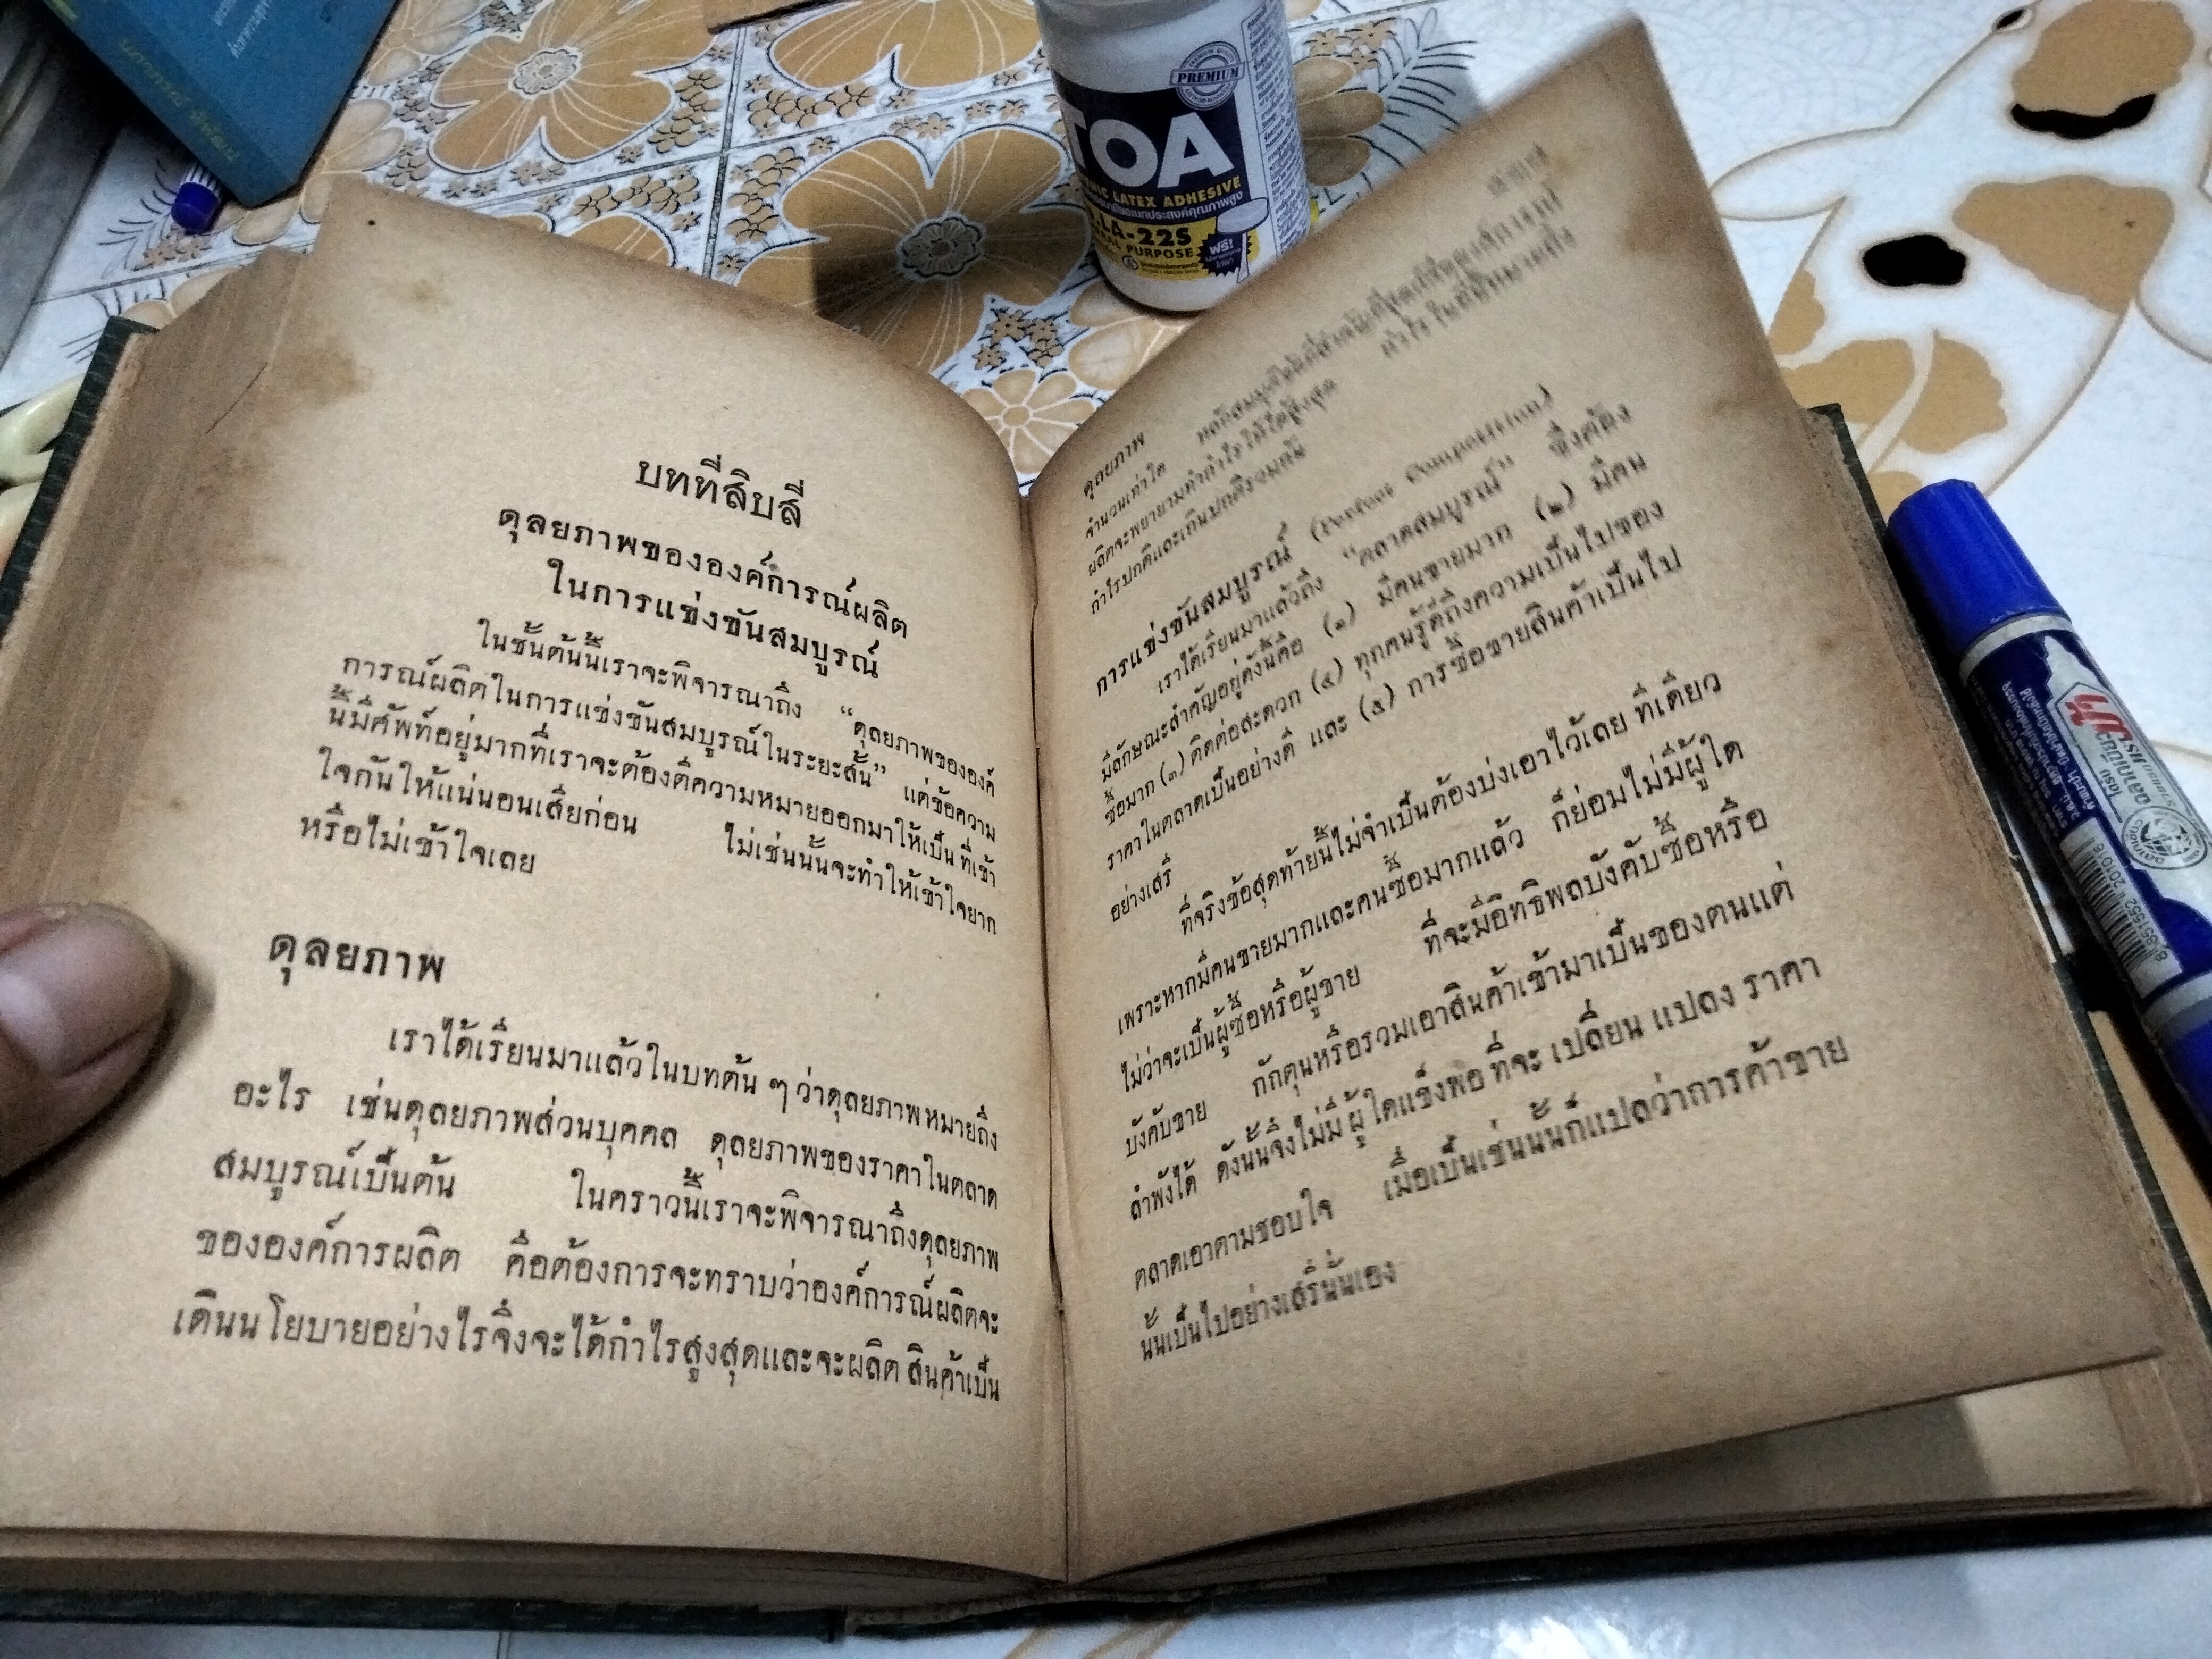 บทที่สิบสี่
ดุลยภาพขององค์การณ์ผลิต
ในการแข่งขันสมบูรณ์
ในชั้นต้นนี้เราจะพิจารณาถึง “ดุลยภาพขององค์
การณ์ผลิตในการแข่งขันสมบูรณ์ในระยะสั้น” แต่ข้อความ
นี้มีศัพท์อยู่มากที่เราจะต้องตีความหมายออกมาให้เป็น ที่เข้า
ใจกันให้แน่นอนเสียก่อน ไม่เช่นนั้นจะทำให้เข้าใจยาก
หรือไม่เข้าใจเลย
ดุลยภาพ
เราได้เรียนมาแล้วในบทต้น ๆ ว่าดุลยภาพหมายถึง
อะไร เช่นดุลยภาพส่วนบุคคล ดุลยภาพของราคาในตลาด
สมบูรณ์เป็นต้น ในคราวนี้เราจะพิจารณาถึงดุลยภาพ
ขององค์การผลิต คือต้องการจะทราบว่าองค์การณ์ผลิตจะ
เดินนโยบายอย่างไรจึงจะได้กำไรสูงสุดและจะผลิต สินค้าเป็น
จำนวนเท่าใด
ดุลยภาพ
ผลิตจะพยายามทำกำไรให้ได้สูงสุด กำไร ในที่นี้หมายถึง
กำไรปกติและเกินปกติรวมกัน
การแข่งขันสมบูรณ์ (Perfect Competition)
เราได้เรียนมาแล้วถึง “ตลาดสมบูรณ์” ซึ่งต้อง
มีลักษณะสำคัญอยู่ดังนี้คือ (๑) มีคนขายมาก (๒) มีคน
ซื้อมาก (๓) ติดต่อสะดวก (๔) ทุกคนรู้ดีถึงความเป็นไปของ
ราคาในตลาดเป็นอย่างดี และ (๕) การซื้อขายสินค้าเป็นไป
อย่างเสรี
ที่จริงข้อสุดท้ายนี้ไม่จำเป็นต้องบ่งเอาไว้เลย ทีเดียว
เพราะหากมีคนขายมากและคนซื้อมากแล้ว ก็ย่อมไม่มีผู้ใด
ไม่ว่าจะเป็นผู้ซื้อหรือผู้ขาย ที่จะมีอิทธิพลบังคับซื้อหรือ
บังคับขาย กักตุนหรือรวมเอาสินค้าเข้ามาเป็นของตนแต่
ลำพังได้ ดังนั้นจึงไม่มี ผู้ ใดแข็งพอ ที่จะ เปลี่ยน แปลง ราคา
ตลาดเอาตามชอบใจ เมื่อเป็นเช่นนั้นก็แปลว่าการค้าขาย
นั้นเป็นไปอย่างเสรีนั่นเอง
PREMIUM
TOA
LATEX ADHESIVE
LA-22S
PURPOSE
ฟรี!
ตราม้า
8 851552 201016